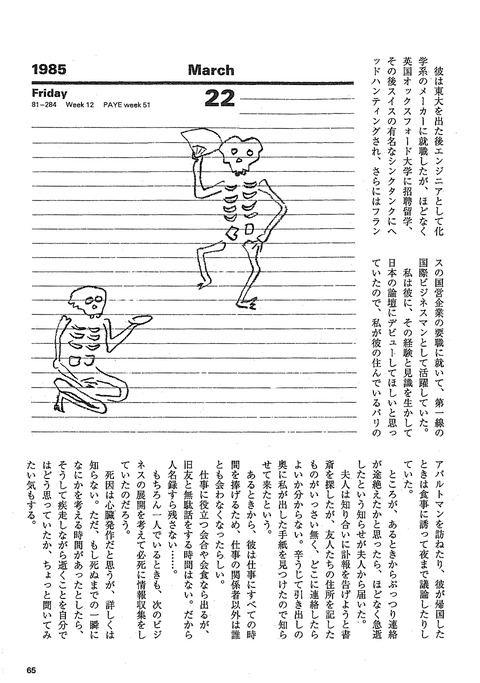 1985 March
Friday 22
81–284 Week 12 PAYE week 51
彼は東大を出た後エンジニアとして化
学系のメーカーに就職したが、ほどなく
英国オックスフォード大学に招聘留学、
その後スイスの有名なシンクタンクにヘ
ッドハンティングされ、さらにはフラン
スの国営企業の要職に就いて、第一線の
国際ビジネスマンとして活躍していた。
私は彼に、その経験と見識を生かして
日本の論壇にデビューしてほしいと思っ
ていたので、私が彼の住んでいるパリの
アパルトマンを訪ねたり、彼が帰国した
ときは食事に誘って夜まで議論したりし
ていた。
ところが、あるときからぷっつり連絡
が途絶えたかと思ったら、ほどなく急逝
したという知らせが夫人から届いた。
夫人は知り合いに訃報を告げようと書
斎を探したが、友人たちの住所を記した
ものがいっさい無く、どこに連絡したら
よいか分からない。辛うじて引き出しの
奥に私が出した手紙を見つけたので知ら
せて来たという。
あるときから、彼は仕事にすべての時
間を捧げるため、仕事の関係者以外は誰
とも会わなくなったらしい。
仕事に役立つ会合や会食なら出るが、
旧友と無駄話をする時間はない。だから
人名録すら残さない……。
もちろん一人でいるときも、次のビジ
ネスの展開を考えて必死に情報収集をし
ていたのだろう。
死因は心臓発作だと思うが、詳しくは
知らない。ただ、もし死ぬまでの一瞬に
なにかを考える時間があったとしたら、
そうして疾走しながら逝くことを自分で
はどう思っていたか、ちょっと聞いてみ
たい気もする。
65